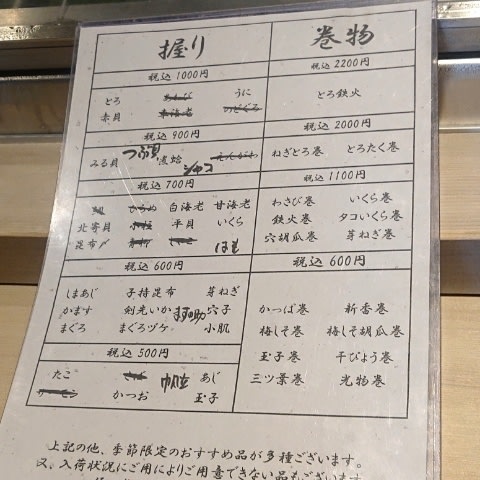 握り
税込 1000円
とろ あわび うに
赤貝 赤海老 のどぐろ
税込 900円
みる貝 つぶ貝 煮蛤 シャコ えんがわ
税込 700円
白海老 甘海老
北寄貝 平貝 いくら
昆布〆 はも
税込 600円
しまあじ 子持昆布 芽ねぎ
かます 剣先いか ます助 穴子
まぐろ まぐろヅケ 小肌
税込 500円
たこ 帆立 あじ
かつお 玉子
巻物
税込 2200円
とろ鉄火
税込 2000円
ねぎとろ巻 とろたく巻
税込 1100円
わさび巻 いくら巻
鉄火巻 タコいくら巻
穴胡瓜巻 芽ねぎ巻
税込 600円
かっぱ巻 新香巻
梅しそ巻 梅しそ胡瓜巻
玉子巻 干ぴょう巻
三ツ葉巻 光物巻
上記の他、季節限定のおすすめ品が多種ございます。
又、入荷状況にご用によりご用意できない品もございます。